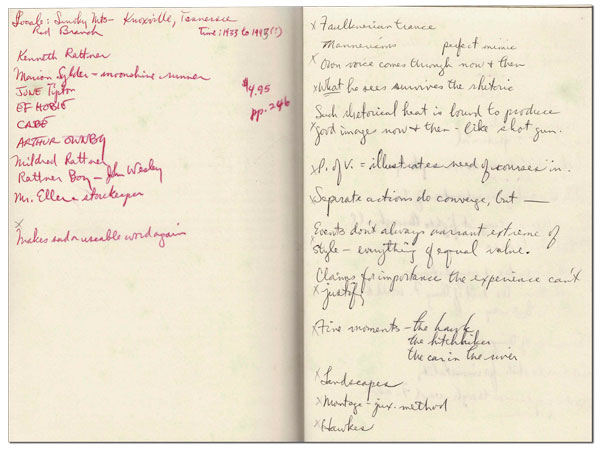 Locale: Smoky Mts - Knoxville, Tennessee
Red Branch Time: 1933 to 1943 (?)
Kenneth Rattner
Marion Sylder - moonshine runner
JUNE Tipton
EF HOBIE
CABE
ARTHUR OWNBY
Mildred Rattner
Rattner Boy - John Wesley
Mr. Eller - storekeeper
$4.95
pp. 246
x
Makes sad a useable word again
x Faulknerian trance
Mannerisms perfect mimic
x Own voice comes through now & then
x What he sees survives the rhetoric
Such rhetorical heat is bound to produce
x good images now & then - like shot gun.
x P. of V. = illustrates need of courses in.
x Separate actions do converge, but —
Events don't always warrant extreme of
x style - everything of equal value.
Claims for importance the experience can't
x justify
x Fine moments - the hawk
the hitchhiker
the car in the river
x Landscapes
x Montage - jux. method
x Hawkes